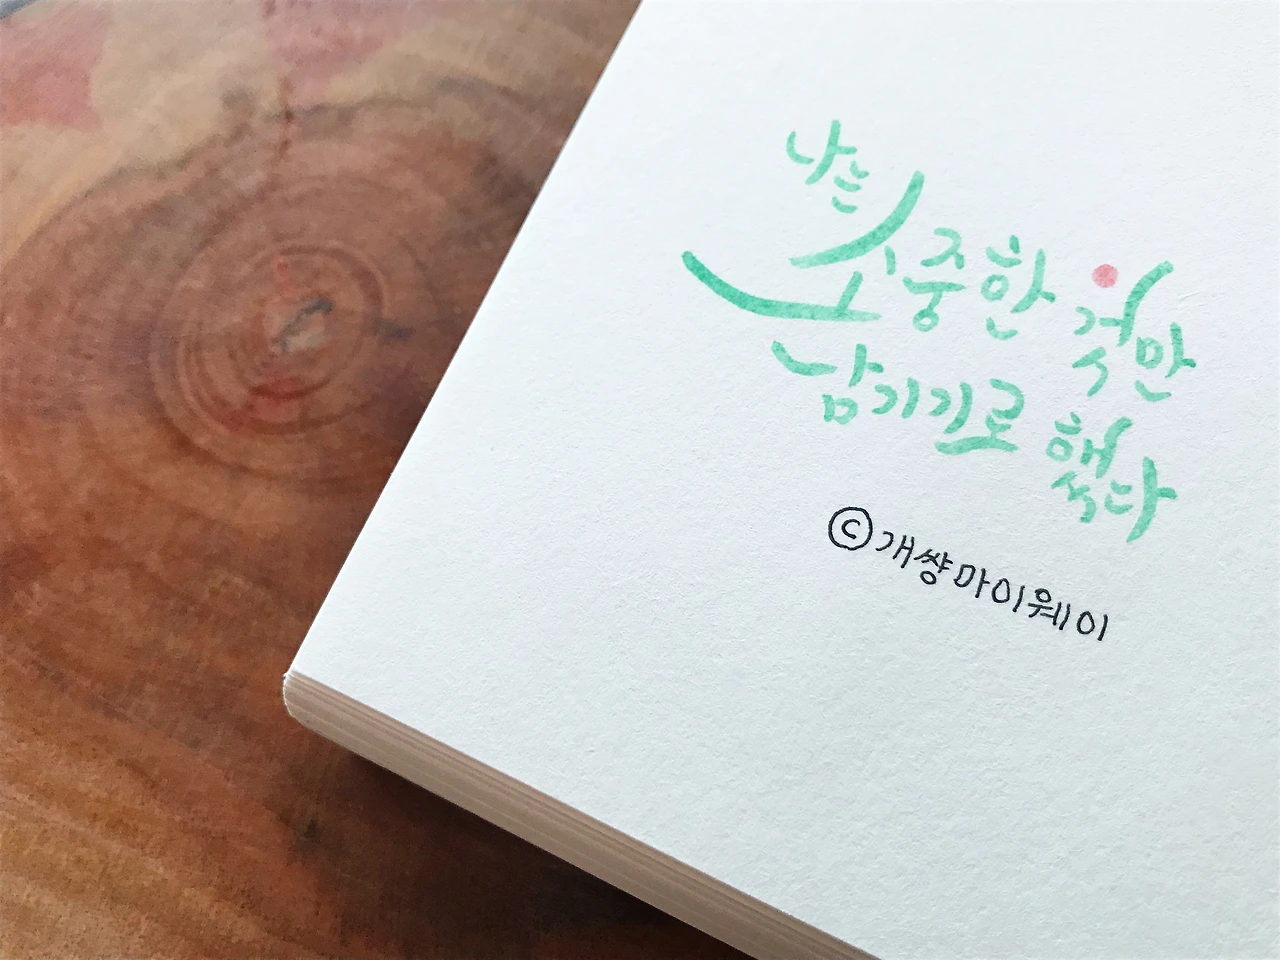 나는
소중한 것만
남기기로 했다
ⓒ개썅마이웨이